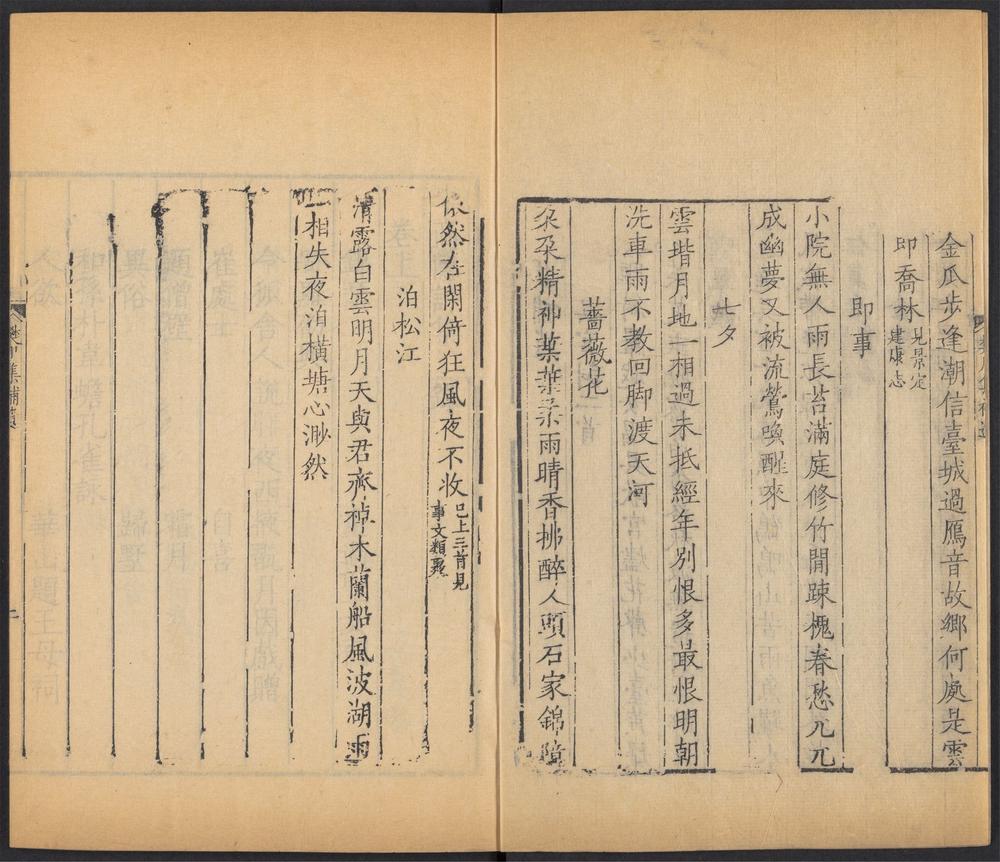 金瓜步逢潮信臺城過鴈音故鄉何處是雲
即喬林見景定建康志
即事
小院無人雨長苔滿庭修竹間踈槐春愁兀兀
成幽夢又被流鶯喚醒來
七夕
雲揩月地一相過未抵經年別恨多最恨明朝
洗車雨不教回脚渡天河
薔薇花
朶朶精神葉葉柔雨晴香拂醉人頭石家錦障
依然在閑倚狂風夜不收已上三首見事文類聚
泊松江
清露白雲明月天與君齊棹木蘭船風波湖雨
一相失夜泊橫塘心渺然
集補遺
二